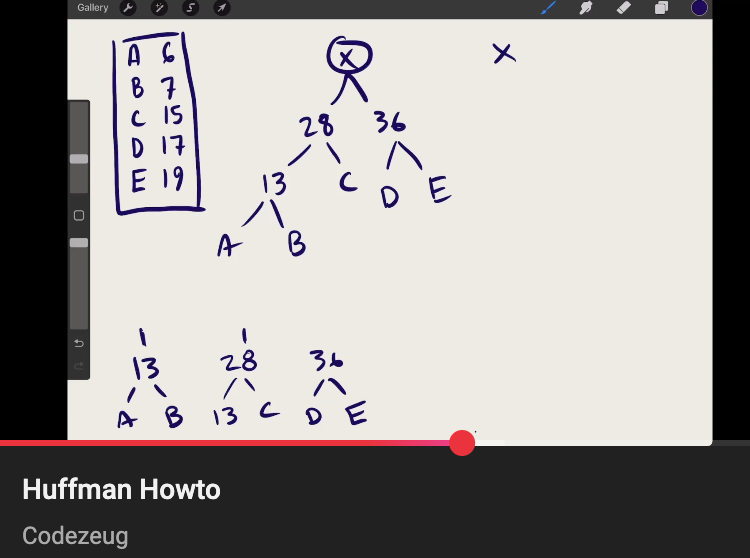 Gallery
A 6
B 7
C 15
D 17
E 19
X
X
28 36
13 C D E
A B
13 28 36
A B 13 C D E
Huffman Howto
Codezeug